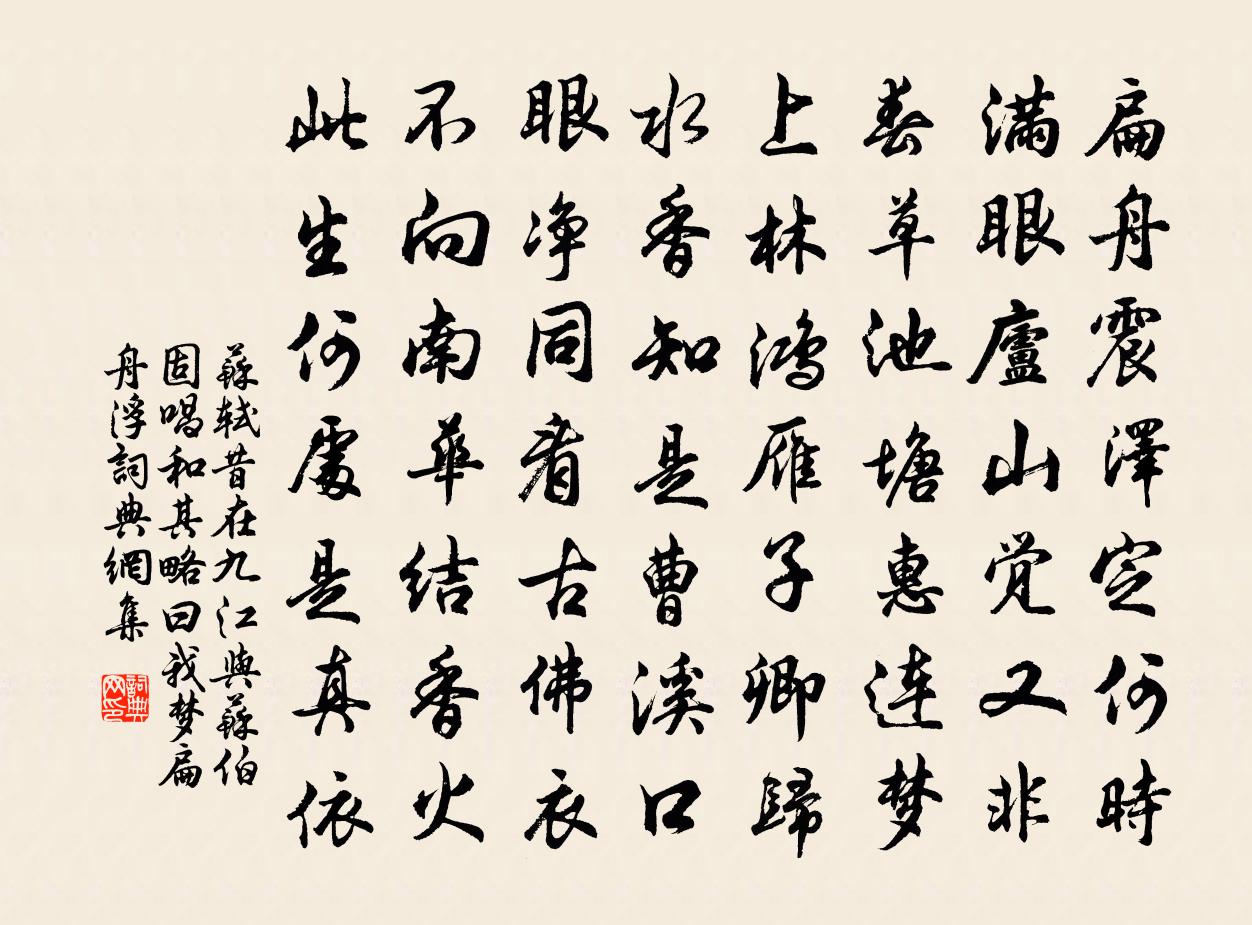 扁舟震澤定何時
滿眼廬山觉又非
春草池塘惠連梦
上林鸿雁子卿歸
水香知是曹溪口
眼净同看古佛衣
不向南華结香火
此生何處是真依
蘇轼昔在九江與蘇伯
固唱和其略曰我梦扁
舟浮詞典網集
詞典网印